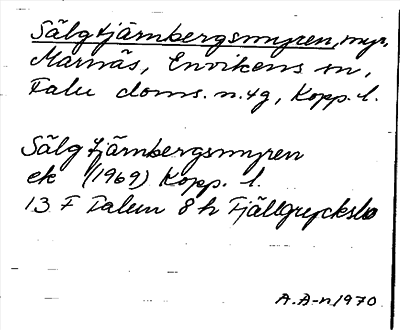 Sälgtjärnbergsmyren, myr,
Marnäs, Envikens sn,
Falu doms. n. tg, Kopp. l.
Sälgtjärnbergsmyren
ek (1969) Kopp. l.
13 F Falun 8 h Fjällgrycksbo
A.A-n 1970